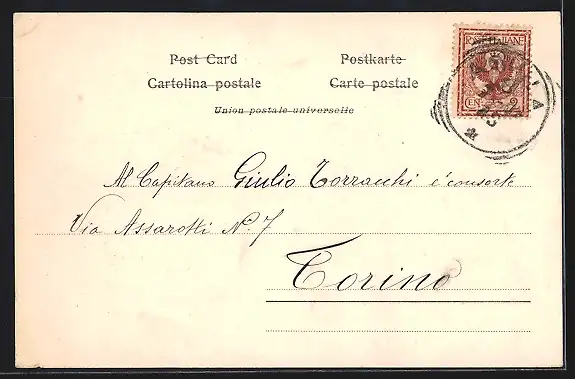 Post Card Postkarte
Cartolina postale Carte postale
Union postale universelle
POSTE ITALIANE
CEN. 2
Al Capitano Giulio Torracchi é consorte
Via Assarotti N. 7
Torino